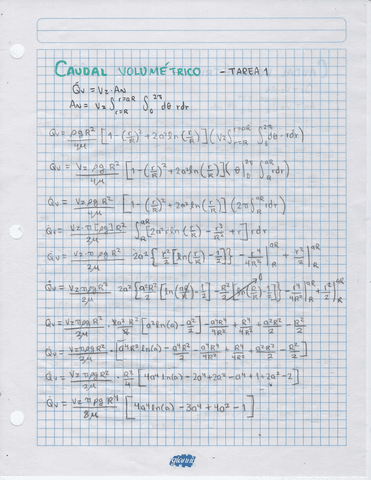 CAUDAL VOLUMÉTRICO - TAREA 1
Q̇v = Vz·AN
AN = Vz∫_{r=R}^{r=aR} ∫_0^{2π} dθ rdr
Q̇v = ρgR²/4μ [1-(r/R)²+2a²ln(r/R)] (Vz∫_{r=R}^{r=aR} ∫_0^{2π} dθ·rdr)
Q̇v = Vz ρgR²/4μ [1-(r/R)²+2a²ln(r/R)] (θ|_0^{2π} ∫_R^{aR} rdr)
Q̇v = Vz ρgR²/4μ [1-(r/R)²+2a²ln(r/R)] (2π∫_R^{aR} rdr)
Q̇v = Vz·π ρgR²/2μ ∫_R^{aR} [2a²r ln(r/R) - r³/R² + r] dr
Q̇v = Vz·πρgR²/2μ 2a² {r²/2 [ln(r/R) - 1/2]} - r⁴/4R² |_R^{aR} + r²/2 |_R^{aR}
Q̇v = VzπρgR²/2μ 2a² {a²R²/2 [ln(aR/R) - 1/2] - R²/2 [ln(R/R) - 1/2]} - r⁴/4R² |_R^{aR} + r²/2 |_R^{aR}
Q̇v = VzπρgR²/2μ · [a²ln(a) - a²/2] - a⁴R⁴/4R² + R⁴/4R² + a²R²/2 - R²/2
Q̇v = VzπρgR²/2μ · [a⁴R²ln(a) - a⁴R²/2 - a⁴R⁴/4R² + R⁴/4R² + a²R²/2 - R²/2]
Q̇v = VzπρgR²/2μ · R²/4 [4a⁴ln(a) - 2a⁴ + 2a² - a⁴ + 1 + 2a² - 2]
Q̇v = VzπρgR⁴/8μ [4a⁴ln(a) - 3a⁴ + 4a² - 1]